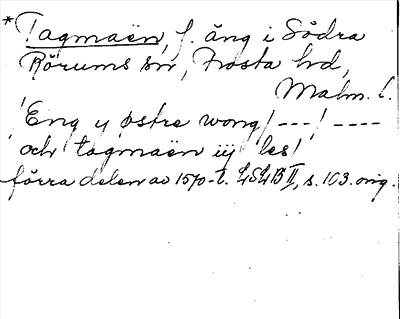 *Tagmaën, f. äng i Södra
Rörums sn, Frosta hd,
Malm. l.
"Eng y østre wong /---/ ----
och tagmaën iij les"
förra delen av 1570-t. LSLB II, s. 103. orig.